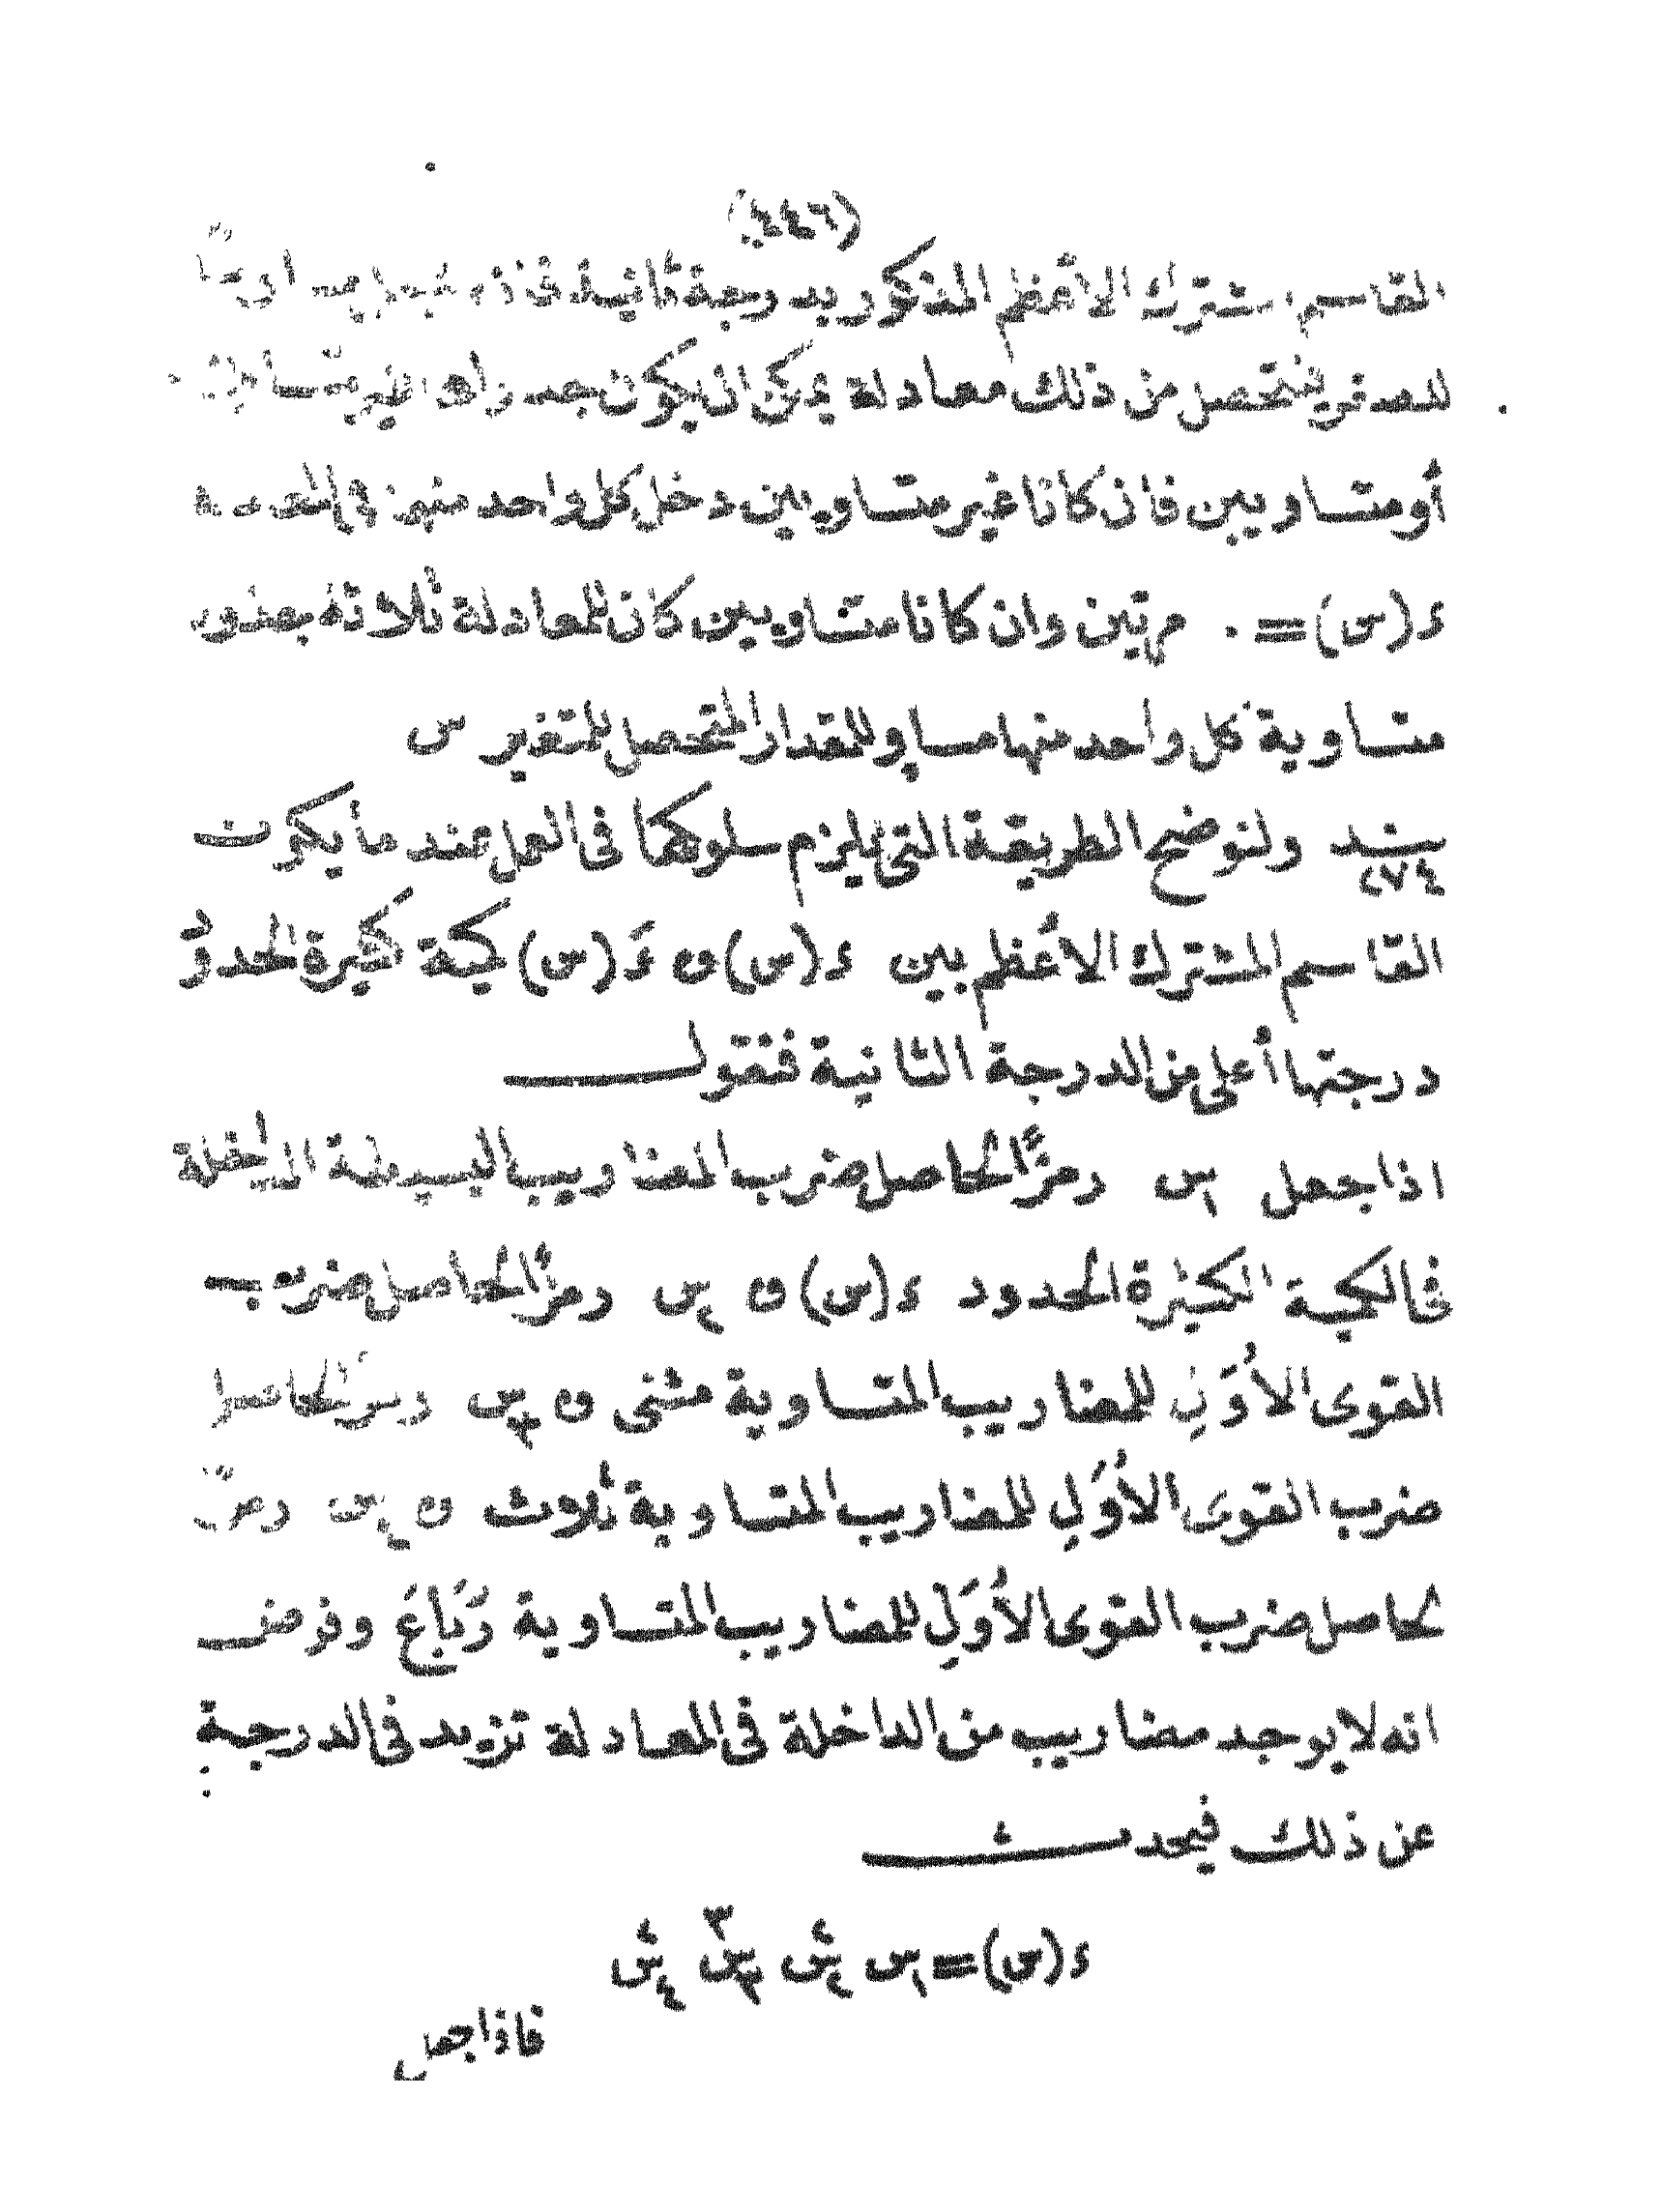 (٤٤٦)
القاسم المشترك الأعظم المذكور بدرجة ثانية
للصفر فيتحصل من ذلك معادلة يمكن ان يكون جذراها غير متساويين
أو متساويين فان كانا غير متساويين دخل كل واحد منهما فى المعادلة
د(س)=٠ مرتين وان كانا متساويين كان للمعادلة ثلاثة جذور
متساوية كل واحد منها مساوٍ للمقدار المتحصل للمتغير س
بند ولنوضح الطريقة التى يلزم سلوكها فى العمل عند ما يكون
٢٧٤
القاسم المشترك الأعظم بين د(س) و دَ(س) كمية كثيرة الحدود
درجتها أعلى من الدرجة الثانية فنقول
اذا جعل س١ رمزًا لحاصل ضرب المضاريب البسيطة الداخلة
فى الكمية الكثيرة الحدود د(س) و س٢ رمزًا لحاصل ضرب
القوى الأوَلِ للمضاريب المتساوية مثنى و س٣ رمزًا لحاصل
ضرب القوى الأُوَلِ للمضاريب المتساوية ثلاث و س٤ رمزًا
لحاصل ضرب القوى الأُوَلِ للمضاريب المتساوية رُبَاعَ وفرض
انه لا يوجد مضاريب من الداخلة فى المعادلة تزيد فى الدرجة
عن ذلك فيحدث
د(س)=س١ س٢^٢ س٣^٣ س٤^٤
فاذا جعل